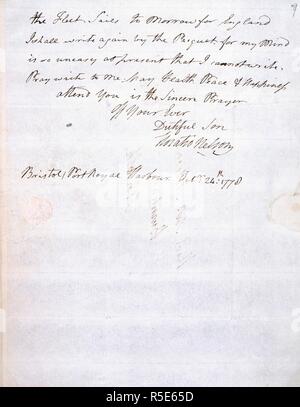 the Fleet Sails to Morrow for England
I shall write again by the Pacquet for my Mind
is so uneasy at present that I cannot write.
Pray write to me. May Health Peace & Happiness
attend You is the Sincere Prayer
of Your Ever
Dutifull Son
Horatio Nelson
Bristol, Port Royal Harbour Octr. 24th: 1778
alamy
alamy stock photo
R5E65D
www.alamy.com